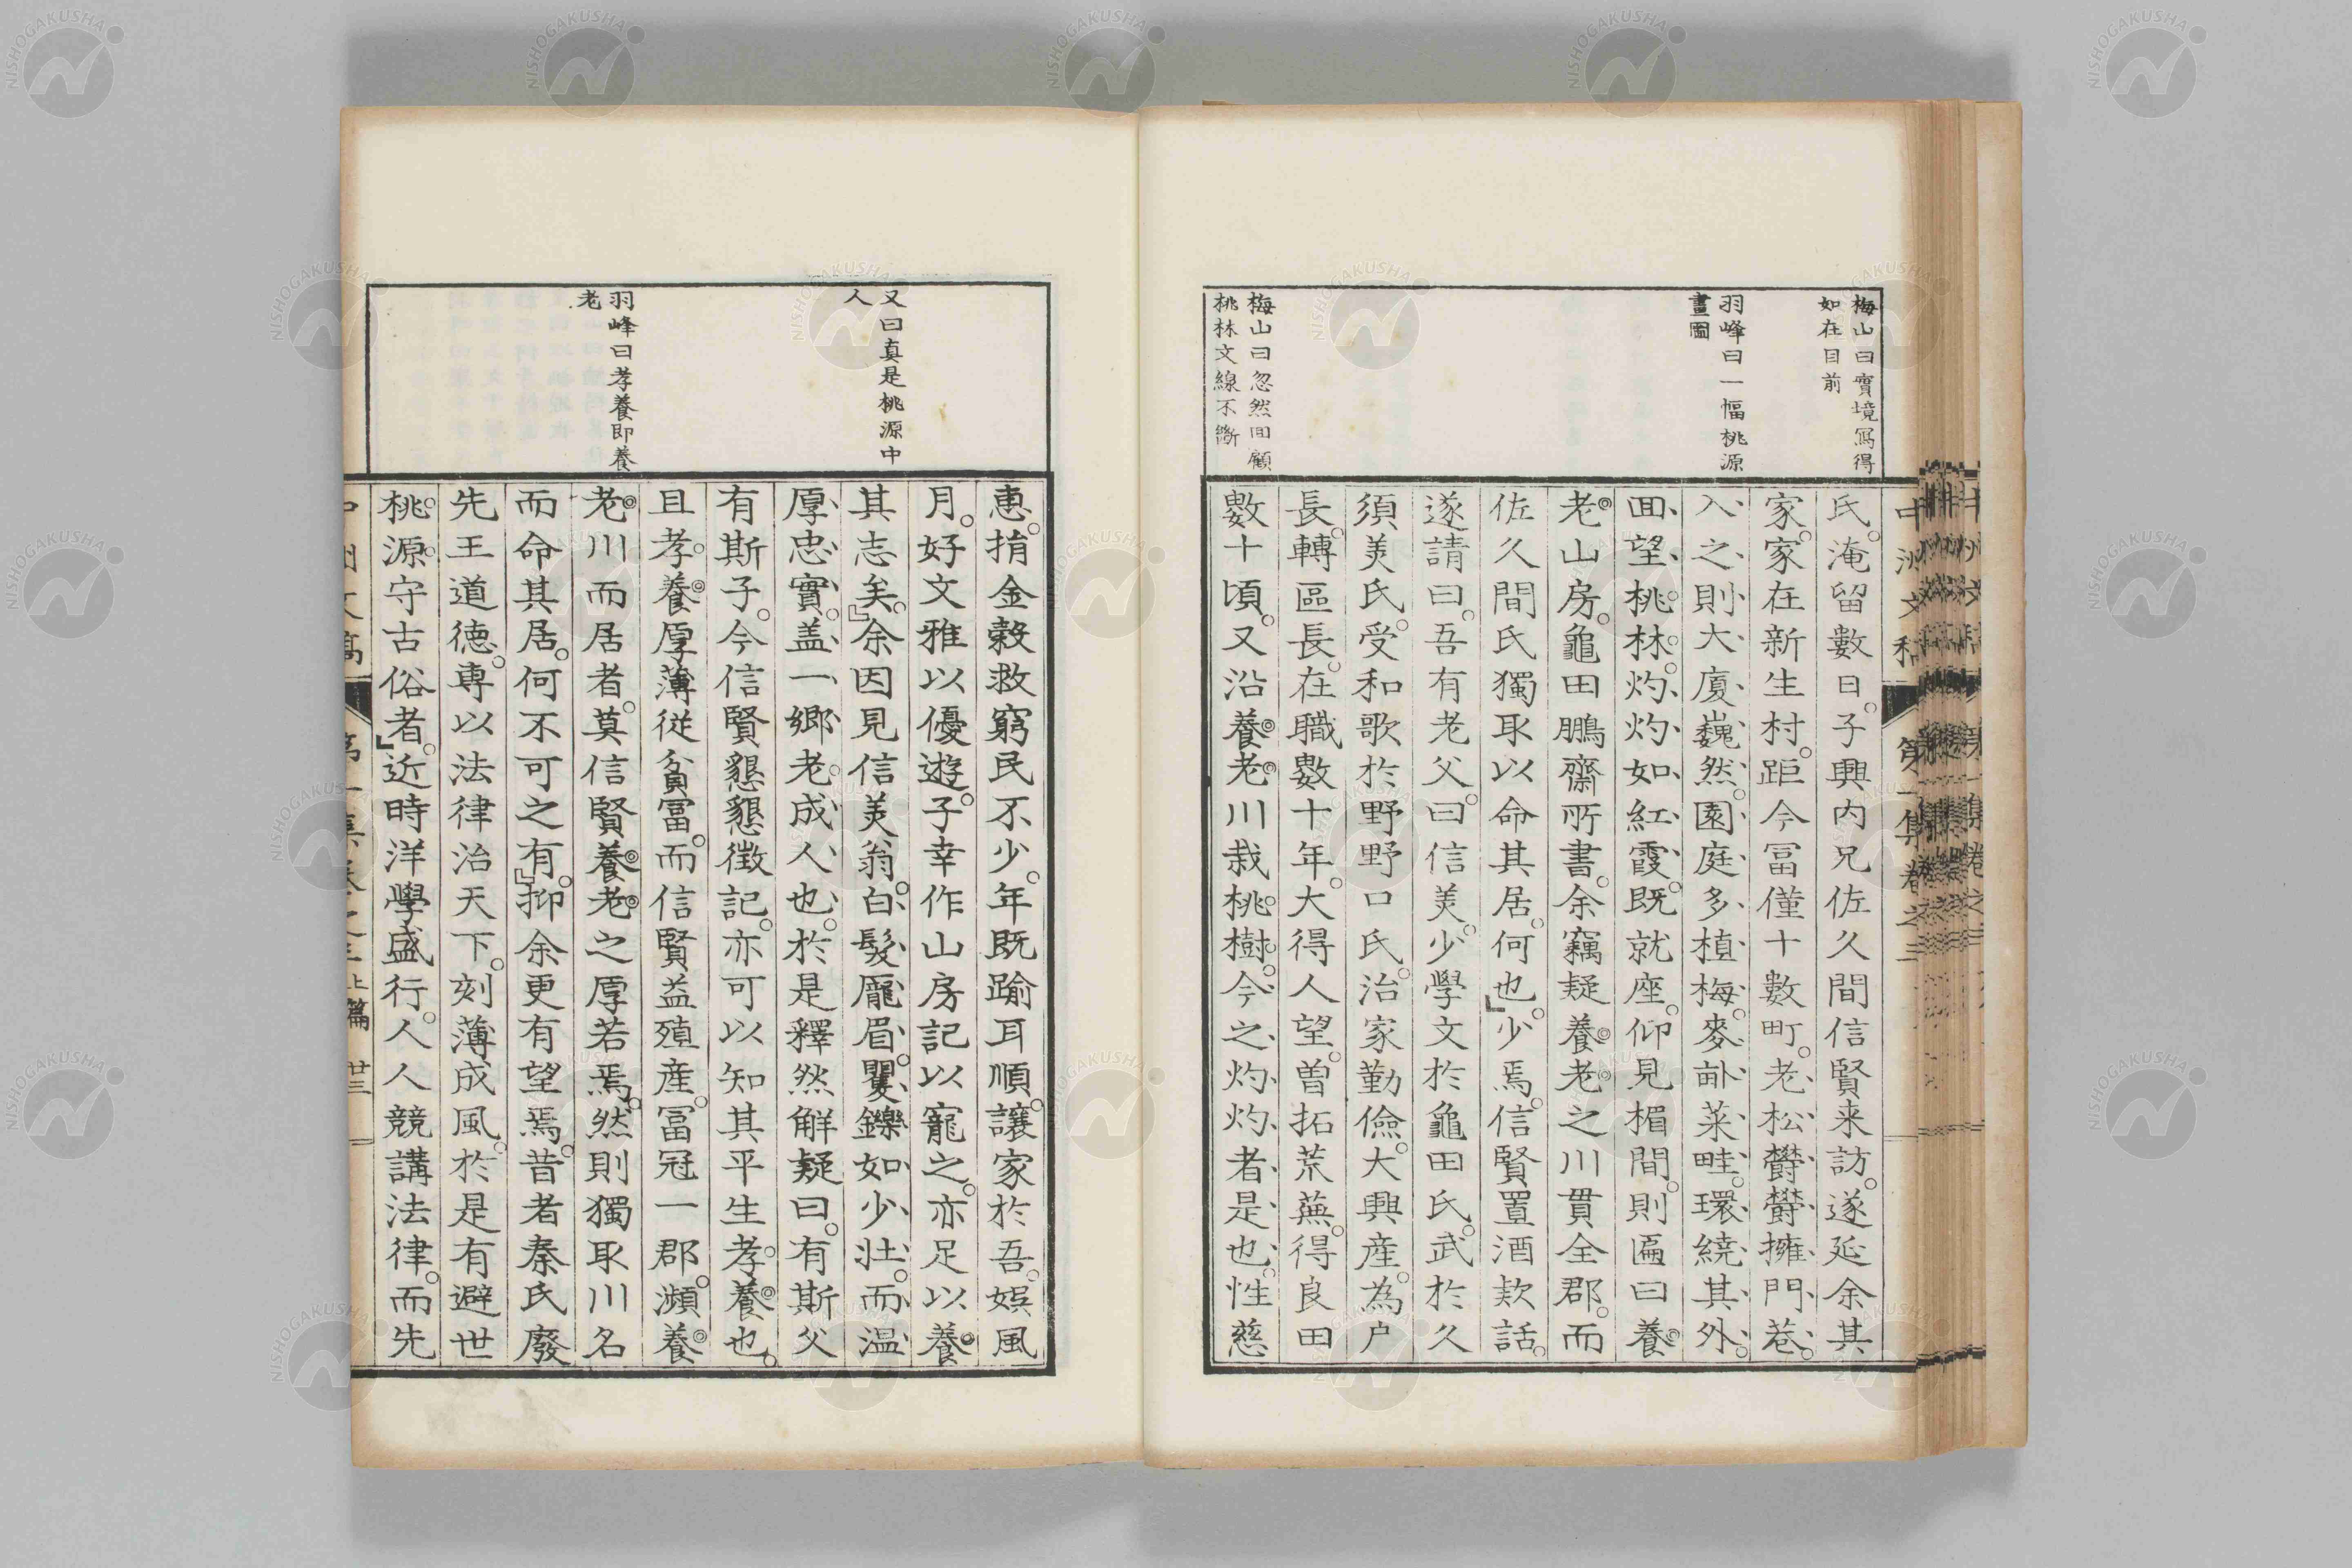 梅山曰實境寫得
如在目前
羽峰曰一幅桃源
畫圖
梅山曰忽然回顧
桃林文線不斷
氏。淹留數日。子興内兄佐久間信賢来訪。遂延余其
家。家在新生村。距今冨僅十數町。老松欝欝擁門巷。
入之則大廈巍然。園庭多植梅。麥𤰜菜畦。環繞其外。
回望桃林。灼灼如紅霞。既就座。仰見楣間。則匾曰養
老山房。龜田鵬齋所書。余竊疑養老之川貫全郡。而
佐久間氏獨取以命其居。何也。」少焉。信賢置酒欵話。
遂請曰。吾有老父。曰信美。少學文於龜田氏。武於久
須美氏。受和歌於野野口氏。治家勤儉。大興産。為户
長。轉區長。在職數十年。大得人望。曽拓荒蕪。得良田
數十頃。又沿養老川栽桃樹。今之灼灼者是也。性慈
又曰真是桃源中
人
羽峰曰孝養即養
老
惠。捐金穀救窮民不少。年既踰耳順。讓家於吾。娯風
月。好文雅以優遊。子幸作山房記以寵之。亦足以養
其志矣。」余因見信美翁。白髮厖眉。矍鑠如少壮。而温
厚忠實。盖一郷老成人也。於是釋然解疑曰。有斯父
有斯子。今信賢懇懇徴記。亦可以知其平生孝養也。
且孝養厚薄從貧冨。而信賢益殖産。冨冠一郡。瀕養
老川而居者。莫信賢養老之厚若焉。然則獨取川名
而命其居。何不可之有。」抑余更有望焉。昔者秦氏廢
先王道德。專以法律治天下。刻薄成風。於是有避世
桃源守古俗者。」近時洋學盛行。人人競講法律。而先